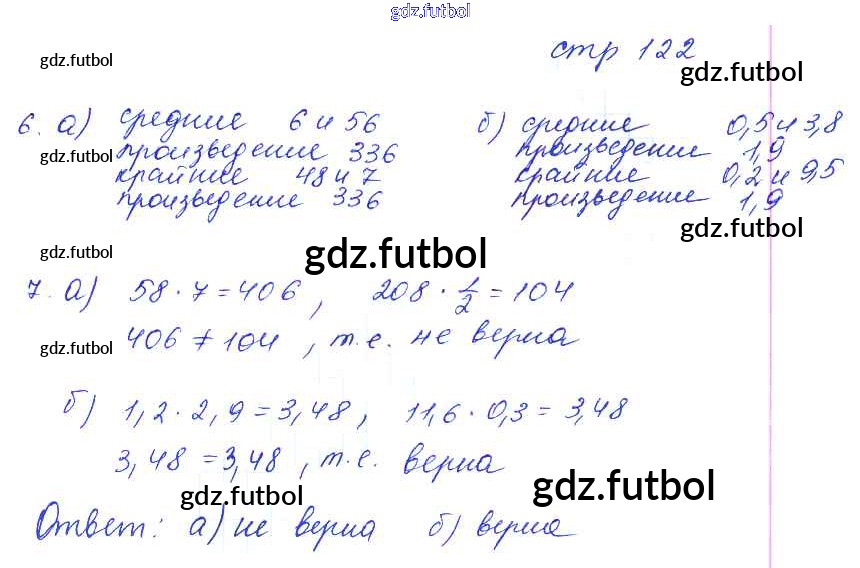 gdz.futbol
стр 122
gdz.futbol
gdz.futbol
6. а) средние 6 и 56
произведение 336
крайние 48 и 7
произведение 336
gdz.futbol
б) средние 0,5 и 3,8
произведение 1,9
крайние 0,2 и 9,5
произведение 1,9
gdz.futbol
gdz.futbol
gdz.futbol
7. а) 58 · 7 = 406, 208 · 1/2 = 104
406 ≠ 104, т.е. не верна
gdz.futbol
б) 1,2 · 2,9 = 3,48, 11,6 · 0,3 = 3,48
3,48 = 3,48, т.е. верна
gdz.futbol
gdz.futbol
Ответ: а) не верна б) верна